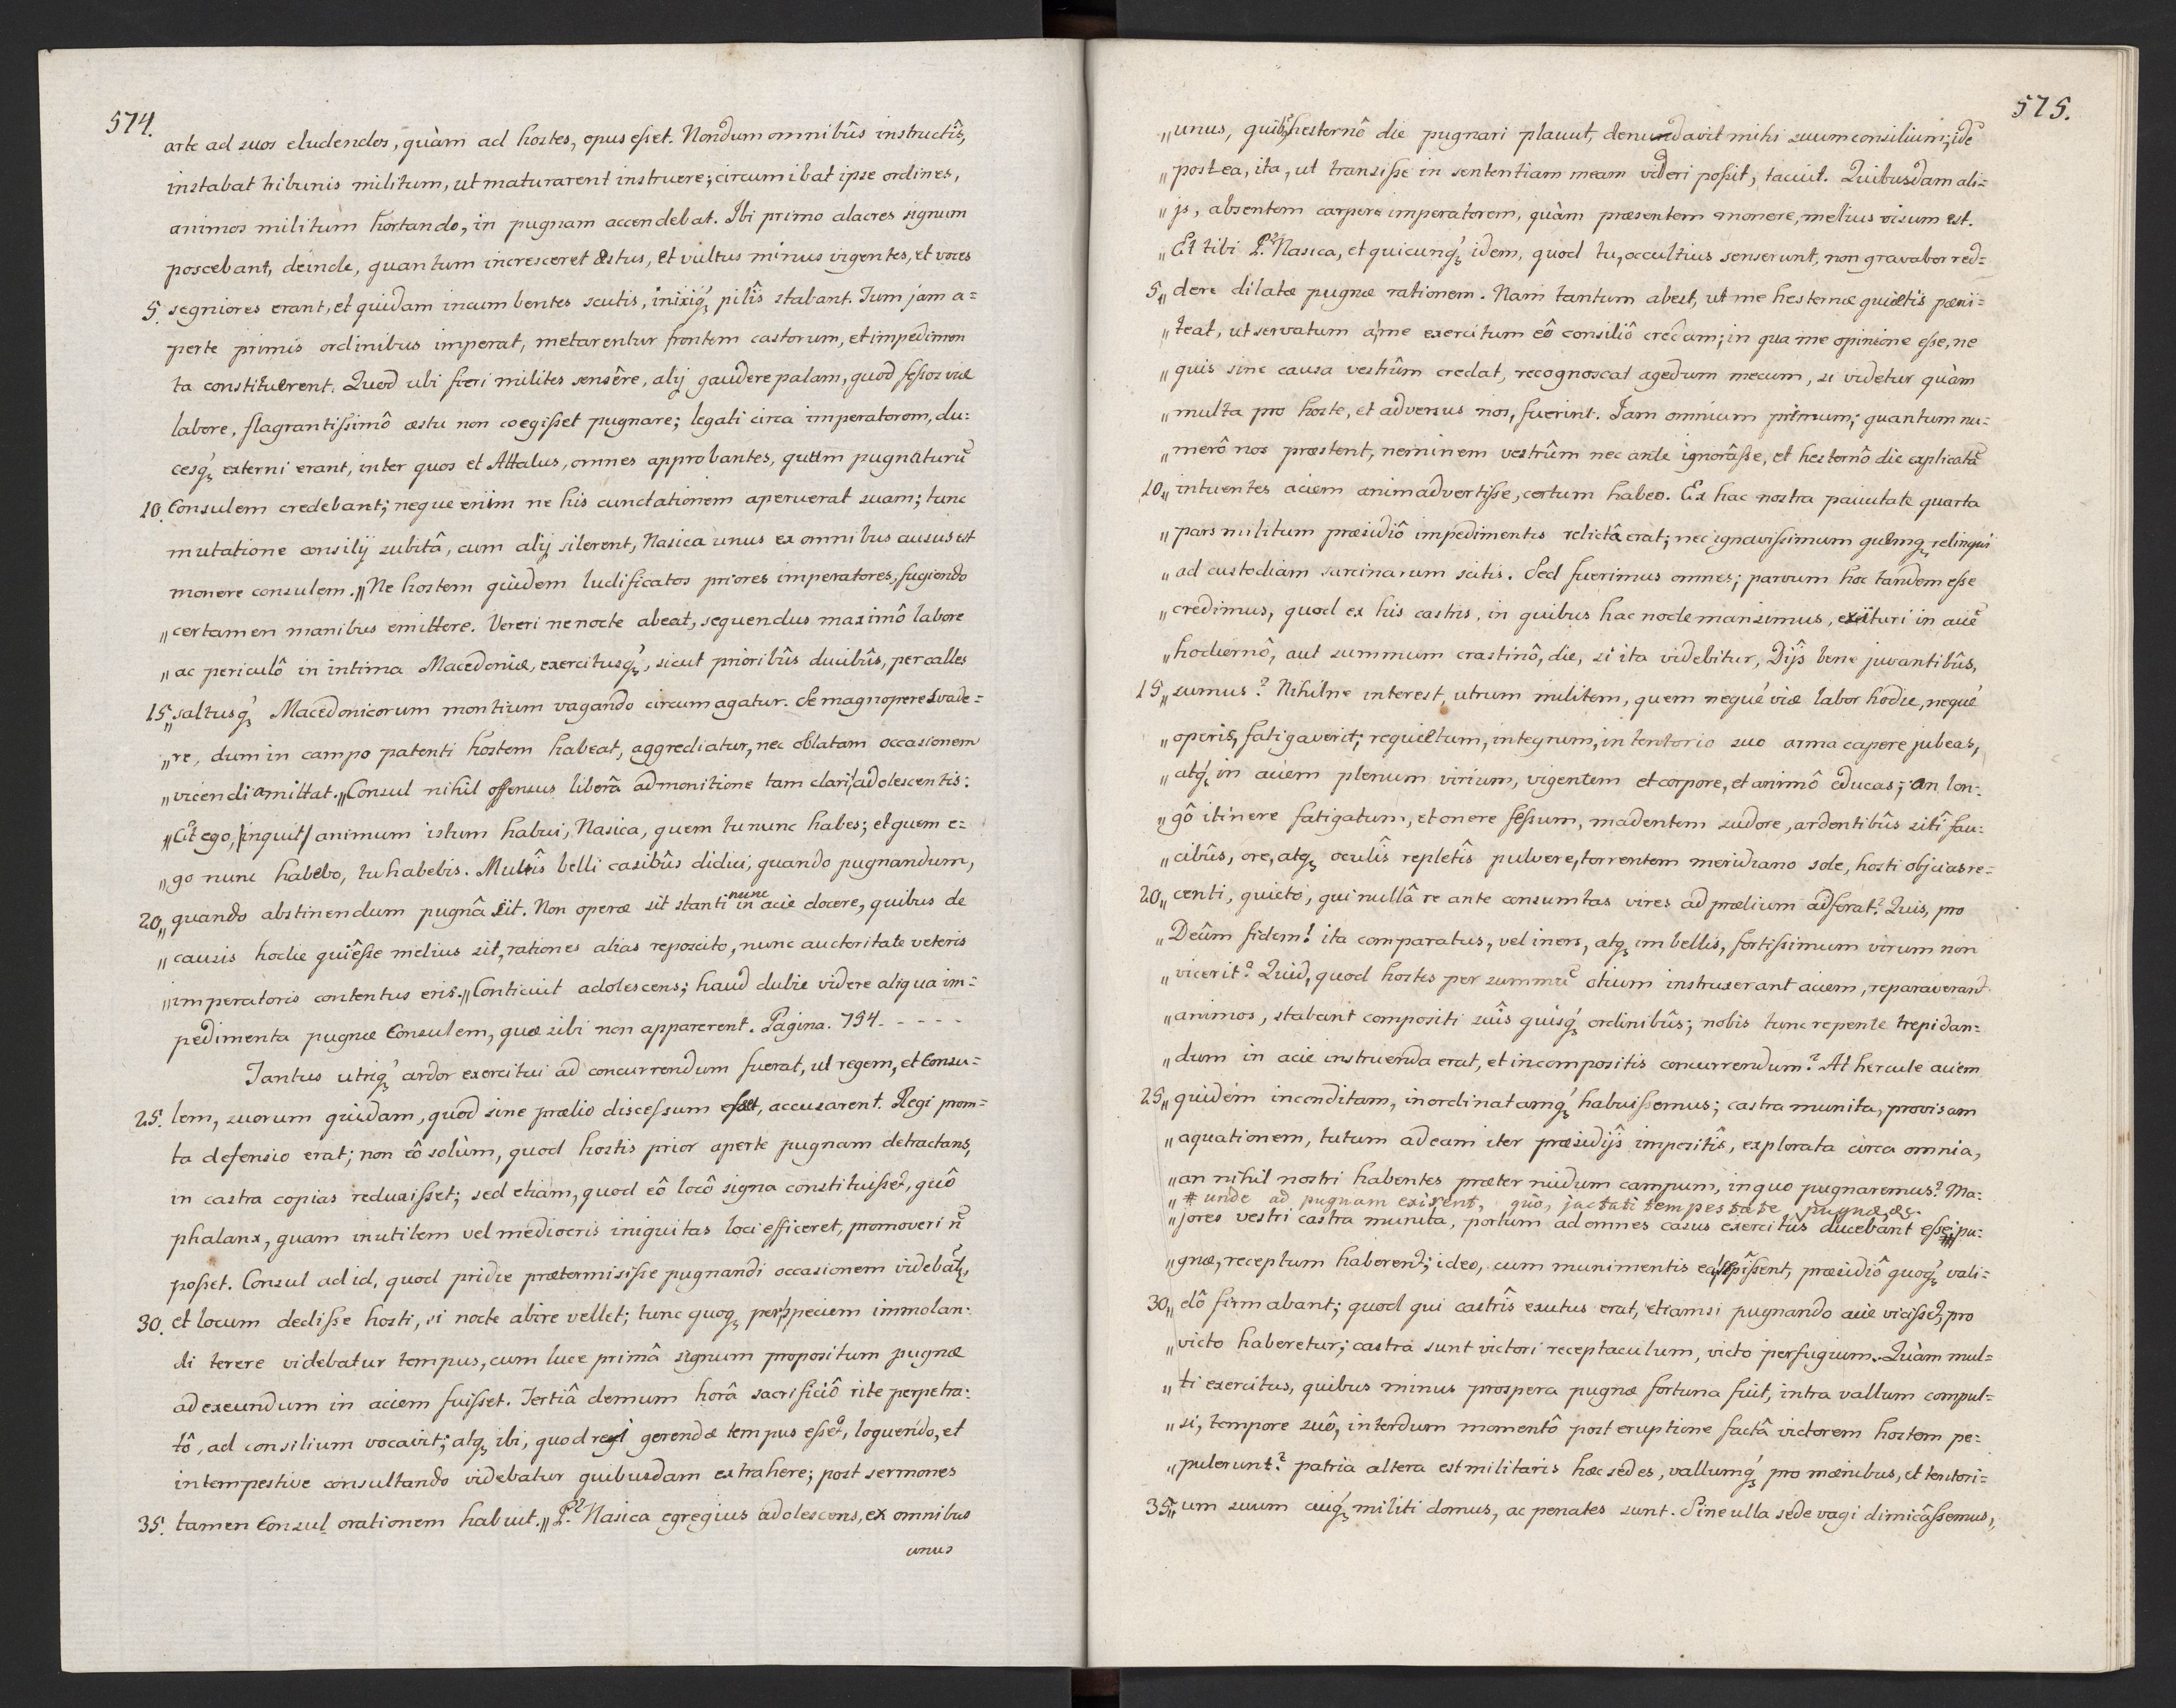 574.
arte ad suos eludendos, quàm ad hostes, opus esset. Nondum omnibûs instructîs,
instabat tribunis militum, ut maturarent instruere; circumibat ipse ordines,
animos militum hortando, in pugnam accendebat. Ibi primo alacres signum
poscebant, deinde, quantum incresceret æstus, et vultus minus vigentes, et voces
5. segniores erant, et quidam incumbentes scutis, inixiq́ʒ pilîs stabant. Tum jam a=
perte primis ordinibus imperat, metarentur frontem castorum, et impedimen
ta constituerent. Quod ubi fieri milites sensêre, alij gaudere palam, quod fessos viæ
labore, flagrantissimô æstu non coegisset pugnare; legati circa imperatorem, du=
cesq́ʒ externi erant, inter quos et Attalus, omnes approbantes, quum pugnaturū
10. Consulem credebant; neque enim ne his cunctationem aperuerat suam; tunc
mutatione consilij subitâ, cum alij silerent, Nasica unus ex omnibus ausus est
monere consulem. „Ne hostem quidem ludificatos priores imperatores, fugiendo
„certamen manibus emittere. Vereri ne nocte abeat, sequendus maximô labore
„ac periculô in intima Macedoniæ, exercitusq́ʒ, sicut prioribûs ducibûs, per calles
15. „saltusq́ʒ Macedonicorum montium vagando circumagatur. Se magnopere svade=
„re, dum in campo patenti hostem habeat, aggrediatur, nec oblatam occasionem
„vicendi amittat. „Consul nihil offensus liberâ admonitione tam clari adolescentis:
„Et ego, /inquit/ animum istum habui, Nasica, quem tu nunc habes; et quem e=
„go nunc habebo, tu habebis. Multîs belli casibûs didici, quando pugnandum,
20. „quando abstinendum pugnâ sit. Non operæ sit stanti nunc in acie docere, quibus de
„causis hodie quiêsse melius sit, rationes alias reposcito, nunc auctoritate veteris
„imperatoris contentus eris. „Conticuit adolescens; haud dubie videre aliqua im=
pedimenta pugnæ Consulem, quæ sibi non apparerent. Pagina. 794. - - - -
Tantus utriq́ʒ ardor exercitui ad concurrendum fuerat, ut regem, et Consu=
25. lem, suorum quidam, quod sine prælio discessum esset, accusarent. Regi prom=
ta defensio erat; non eô solùm, quod hostis prior aperte pugnam detractans,
in castra copias reduxisset; sed etiam, quod eô locô signa constituisset, quô
phalanx, quam inutilem vel mediocris iniquitas loci efficeret, promoveri ñ
posset. Consul ad id, quod pridie prætermisisse pugnandi occasionem videbatʒ,
30. et locum dedisse hosti, si nocte abire vellet; tunc quoqʒ per speciem immolan=
di terere videbatur tempus, cum luce primâ signum propositum pugnæ
ad exeundum in aciem fuisset. Tertiâ demum horâ sacrificiô rite perpetra=
tô, ad consilium vocavit; atqʒ ibi, quod regi gerendæ tempus esset, loquendo, et
intempestive consultando videbatur quibusdam extrahere; post sermones
35. tamen Consul orationem habuit. „P. Nasica egregius adolescens, ex omnibus
unus
575.
„unus, quib9 hesternô die pugnari placuit, denudavit mihi suum consilium; idē
„postea, ita, ut transisse in sententiam meam videri possit, tacuit. Quibusdam ali=
„js, absentem carpere imperatorem, quàm præsentem monere, melius visum est.
„Et tibi P. Nasica, et quicunq́ʒ idem, quod tu, occultius senserunt, non gravabor red=
5. „dere dilatæ pugnæ rationem. Nam tantum abest, ut me hesternæ quiætis pæni=
„teat, ut servatum a me exercitum eô consiliô credam; in qua me opinione esse, ne
„quis sine causa vestrûm credat, recognoscat agedum mecum, si videtur quàm
„multa pro hoste, et adversus nos, fuerint. Iam omnium primum; quantum nu=
„merô nos præstent, neminem vestrûm nec ante ignorâsse, et hesternô die explicatā
10. „intuentes aciem animadvertisse, certum habeo. Ex hac nostra paucitate quarta
„pars militum præsidiô impedimentis relicta erat; nec ignavissimum quemqʒ relinqui
„ad custodiam sarcinarum scitis. Sed fuerimus omnes; parvum hoc tandem esse
„credimus, quod ex his castris, in quibus hac nocte mansimus, exituri in aciē
„hodiernô, aut summum crastinô, die, si ita videbitur, Dijs bene juvantibûs,
15. „sumus? Nihilne interest, utrum militem, quem neque viæ labor hodie, neque
„operis, fatigaverit; requietum, integrum, in tentorio suo arma capere jubeas,
„atq́ʒ in aciem plenum virium, vigentem et corpore, et animô educas; an lon=
„gô itinere fatigatum, et onere fessum, madentem sudore, ardentibûs sitî fau=
„cibûs, ore, atqʒ oculîs repletîs pulvere, torrentem meridiano sole, hosti objicias re=
20. „centi, quieto, qui nullâ re ante consumtas vires ad prælium adferat? Quis, pro
„Deûm fidem! ita comparatus, vel iners, atqʒ imbellis, fortissimum virum non
„vicerit? Quid, quod hostes per summū otium instruxerant aciem, reparaverant
„animos, stabant compositi suîs quisq́ʒ ordinibûs; nobis tunc repente trepidan=
„dum in acie instruenda erat, et incompositis concurrendum? At hercule aciem
25. „quidem inconditam, inordinatamq́ʒ habuissemus; castra munita, provisam
„aquationem, tutum ad eam iter præsidijs impositîs, explorata circa omnia,
„an nihil nostri habentes præter nudum campum, in quo pugnaremus? Ma=
„# unde ad pugnam exirent, quo, jactati tempestate pugnæ, &c.
„jores vestri castra munita, portum ad omnes casus exercitûs ducebant esse; # pu=
„gnæ, receptum haberent; ideo, cum munimentis ea sepîssent, præsidiô quoq́ʒ vali=
30. „dô firmabant; quod qui castrîs exutus erat, etiamsi pugnando acie vicisset, pro
„victo haberetur; castra sunt victori receptaculum, victo perfugium. Quàm mul=
„ti exercitus, quibus minus prospera pugnæ fortuna fuit, intra vallum compul=
„si, tempore suô, interdum momentô post eruptione factâ victorem hostem pe=
„pulerunt? patria altera est militaris hæc sedes, vallumq́ʒ pro mænibus, et tentori=
35. „um suum cuiq́ʒ militi domus, ac penates sunt. Sine ulla sede vagi dimicâssemus,